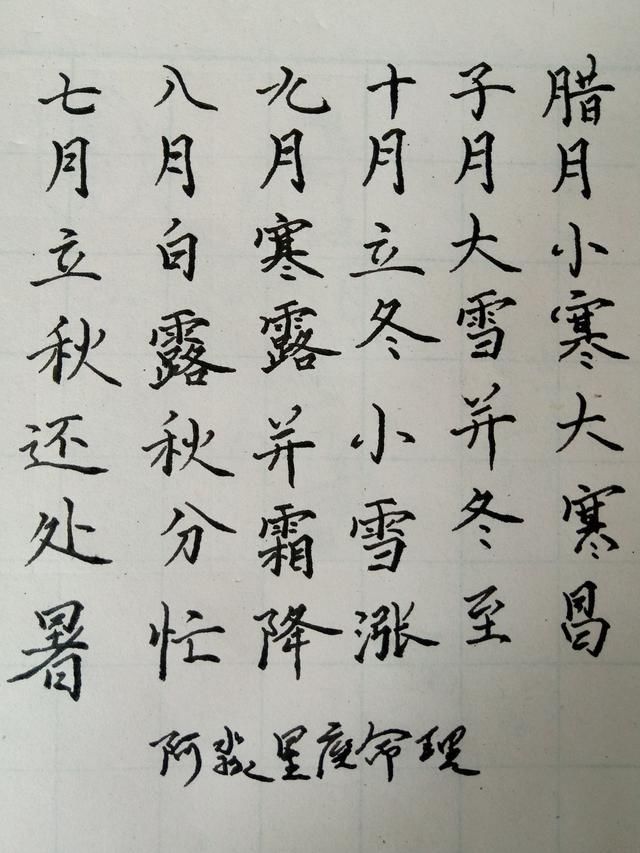 七月立秋还处暑
八月白露秋分忙
九月寒露并霜降
十月立冬小雪涨
子月大雪并冬至
腊月小寒大寒昌
阿淼星座命理